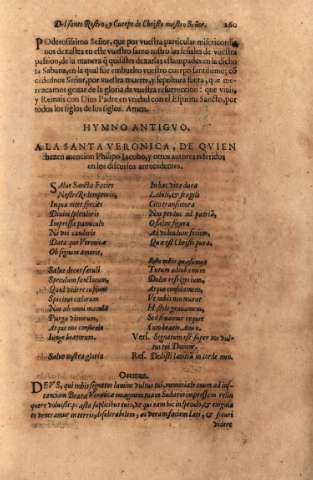 Del santo Rostro, y Cuerpo de Christo nuestro Señor. 260
POderosissimo Señor, que por vuestra particular misericordia
nos dexastes en este vuestro santo rostro las señales de vuestra
passion, de la manera q̃ quedastes estampado en la dicha
Sabana, en la qual fue embuelto vuestro cuerpo santissimo; cõ
cedednos Señor, por vuestra muerte, y sepultura santa, que me-
rezcamos gozar de la gloria de vuestra resurreccion: que viuis,
y Reinais con Dios Padre en vnidad con el Espiritu Sancto, por
todos los siglos de los siglos. Amen.
HYMNO ANTIGVO,
A LA SANTA VERONICA, DE QVIEN
hazen mencion Philipo Iacobo, y otros autores referidos
en los discursos antecedentes.
SAlue Sancta Facies
Nostri Redemptoris,
In qua nitet species
Diuini splendoris
Impressa panniculo
Niuei candoris
Data que Veronicæ
Ob signum amoris,
Salue decus sæculi
Speculum sanctorum,
Quod videre cupiunt
Spiritus cælorum
Nos ab omni macula
Purga vitiorum,
Atque nos consortio
Iunge beatorum.
Salue nostra gloria
In hac vita dura
Labili, & fragili
Cito transitura
Nos perduc ad patriã,
O fælix figura
Ad videndum faciem,
Quæ est Christi pura.
Esto nobis quæsumus
Tutum adiuuamen
Dulce refrigerium,
Atque consolamen,
Ut nobis non noceat
Hostile grauamen,
Sed fruamur requie
Omnes beati. Amen.
Vers. Signatum est super nos vul-
tus tui Domine.
Res. Dedisti lætitiã in corde meo.
Oremus.
DEVS, qui nobis signatis lumine vultus tui, memoriale tuum ad ins-
tanciam Beatæ Veronicæ imaginem tuam Sudario impressam relin
quere voluisti: præsta
videre